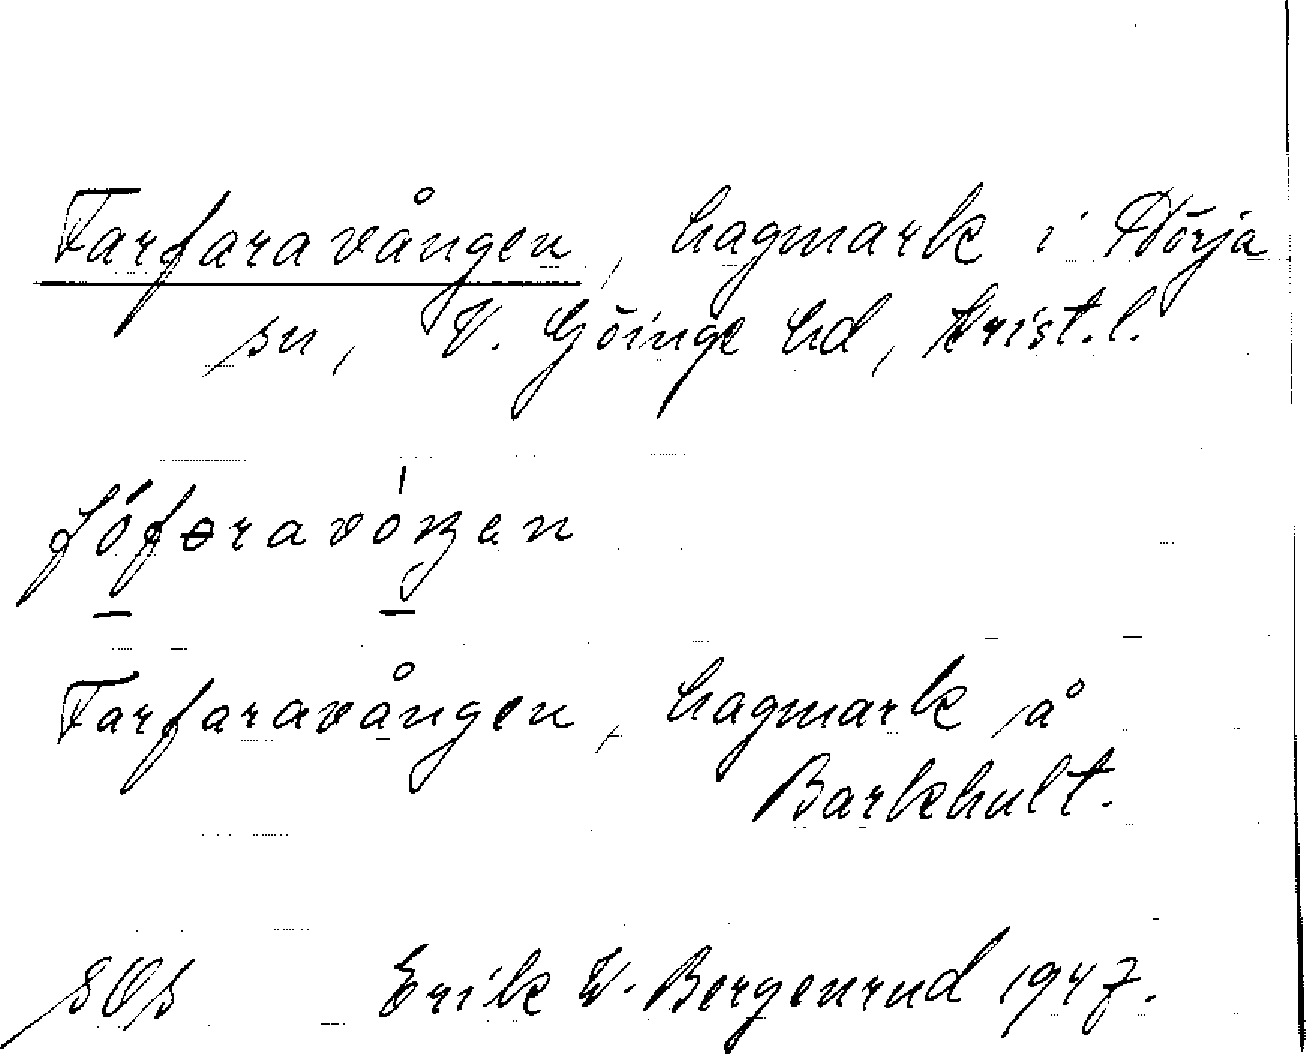 Farfaravången, hagmark i Nörja
sn, V. Göinge hd, Krist.l.
Farfaravången, hagmark å
Barkhult.
Erik W. Bergenrud 1947.